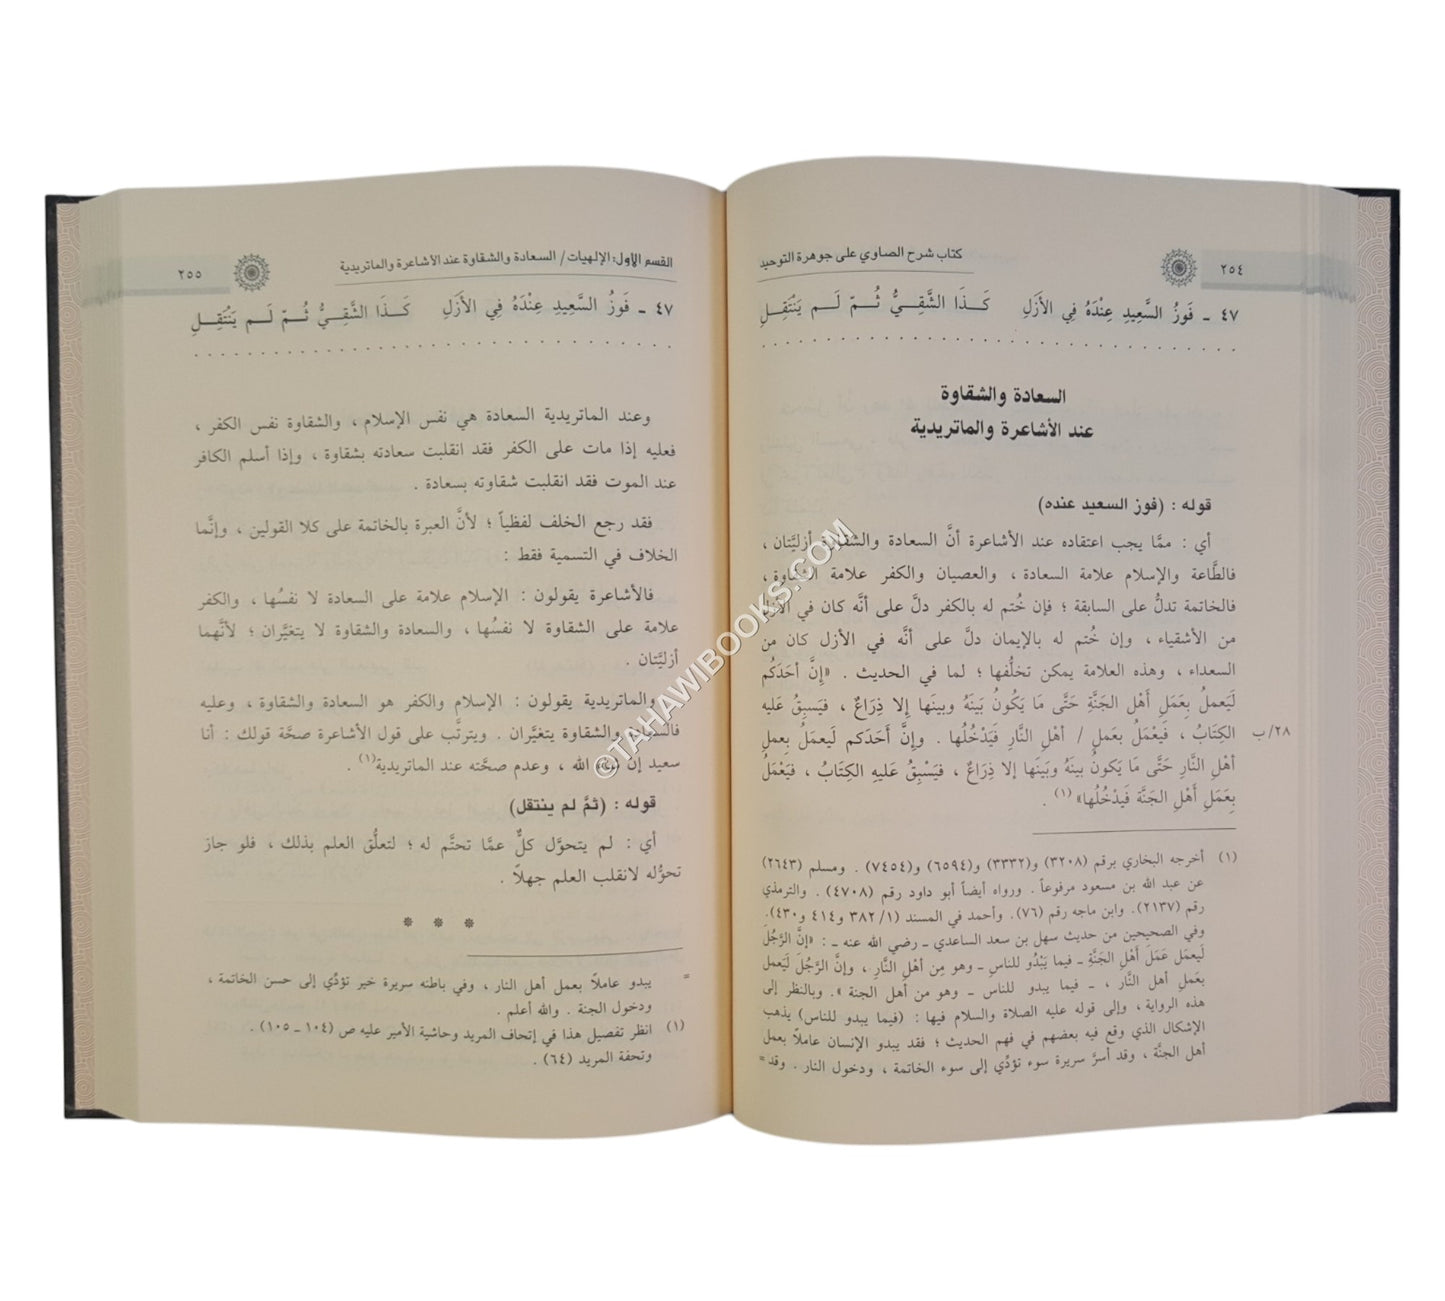 ٢٥٤
كتاب شرح الصاوي على جوهرة التوحيد
٤٧ ـ فَوزُ السَّعِيدِ عِنْدَهُ فِي الأَزَلِ كَـذَا الشَّقِـيُّ ثُـمّ لَـم يَنْتَقِـلِ
السعادة والشقاوة
عند الأشاعرة والماتريدية
قوله : (فوز السعيد عنده)
أي : ممَّا يجب اعتقاده عند الأشاعرة أنَّ السعادة والشقاوة أزليَّتان ،
فالطَّاعة والإسلام علامة السعادة ، والعصيان والكفر علامة الشقاوة ،
فالخاتمة تدلُّ على السابقة ؛ فإن خُتم له بالكفر دلَّ على أنَّه كان في الأزل
من الأشقياء ، وإن خُتم له بالإيمان دلَّ على أنَّه في الأزل كان من
السعداء ، وهذه العلامة يمكن تخلُّفها ؛ لما في الحديث . «إنَّ أحَدَكُم
لَيَعملُ بِعَمَلِ أَهْلِ الجَنَّةِ حَتَّى مَا يَكُونُ بَينَهُ وبينَها إلا ذِرَاعٌ ، فيَسبِقُ عَليه
الكِتَابُ ، فَيَعْمَلُ بعَملِ / أهْلِ النَّارِ فَيَدْخُلُها . وإنَّ أَحَدَكم لَيعمَلُ بِعملِ
٢٨/ ب
أهْلِ النَّارِ حَتَّى مَا يَكونُ بينَهُ وبَينَها إلا ذِرَاعٌ ، فيَسْبِقُ عَليهِ الكِتَابُ ، فيَعْمَلُ
بِعَمَلِ أَهْلِ الجَنَّة فَيدْخُلُها» (١) .
(١) أخرجه البخاري برقم (٣٢٠٨) و(٣٣٣٢) و(٦٥٩٤) و(٧٤٥٤) . ومسلم (٢٦٤٣)
عن عبد الله بن مسعود مرفوعاً . ورواه أيضاً أبو داود رقم (٤٧٠٨) . والترمذي
رقم (٢١٣٧). وابن ماجه رقم (٧٦). وأحمد في المسند (١/ ٣٨٢ و٤١٤ و٤٣٠).
وفي الصحيحين من حديث سهل بن سعد الساعدي ـ رضي الله عنه ـ : «إنَّ الرَّجُلَ
لَيعمَل عَمَلَ أَهْلِ الجَنَّةِ ـ فيما يَبْدُو للناسِ ـ وهو مِن أهْلِ النَّارِ ، وإنَّ الرَّجُلَ لَيَعمل
بعَملِ أهْلِ النَّار ، ـ فيما يبدو للناس ـ وهو من أهل الجنة ». وبالنظر إلى
هذه الرواية ، وإلى قوله عليه الصلاة والسلام فيها : (فيما يبدو للناس) يذهب
الإشكال الذي وقع فيه بعضهم في فهم الحديث ؛ فقد يبدو الإنسان عاملاً بعمل
أهل الجنَّة ، وقد أسرَّ سريرة سوء تؤدِّي إلى سوء الخاتمة ، ودخول النار . وقد =
القسم الأول: الإلهيات/ السعادة والشقاوة عند الأشاعرة والماتريدية
٢٥٥
٤٧ ـ فَوزُ السَّعِيدِ عِنْدَهُ فِي الأَزَلِ كَـذَا الشَّقِـيُّ ثُـمّ لَـم يَنْتَقِـلِ
وعند الماتريدية السعادة هي نفس الإسلام ، والشقاوة نفس الكفر ،
فعليه إذا مات على الكفر فقد انقلبت سعادته بشقاوة ، وإذا أسلم الكافر
عند الموت فقد انقلبت شقاوته بسعادة .
فقد رجع الخلف لفظياً ؛ لأنَّ العبرة بالخاتمة على كلا القولين ، وإنَّما
الخلاف في التسمية فقط :
فالأشاعرة يقولون : الإسلام علامة على السعادة لا نفسُها ، والكفر
علامة على الشقاوة لا نفسُها ، والسعادة والشقاوة لا يتغيَّران ؛ لأنَّهما
أزليَّتان .
والماتريدية يقولون : الإسلام والكفر هو السعادة والشقاوة ، وعليه
فالسعادة والشقاوة يتغيَّران . ويترتَّب على قول الأشاعرة صحَّة قولك : أنا
سعيد إن شاء الله ، وعدم صحَّته عند الماتريدية(١) .
قوله : (ثمَّ لم ينتقل)
أي : لم يتحوَّل كلٌّ عمَّا تحتَّم له ؛ لتعلُّق العلم بذلك ، فلو جاز
تحوُّله لانقلب العلم جهلاً .
* * *
= يبدو عاملاً بعمل أهل النار ، وفي باطنه سريرة خير تؤدِّي إلى حسن الخاتمة ،
ودخول الجنة . والله أعلم .
(١) انظر تفصيل هذا في إتحاف المريد وحاشية الأمير عليه ص (١٠٤ ـ ١٠٥) .
وتحفة المريد (٦٤) .
©TAHAWIBOOKS.COM